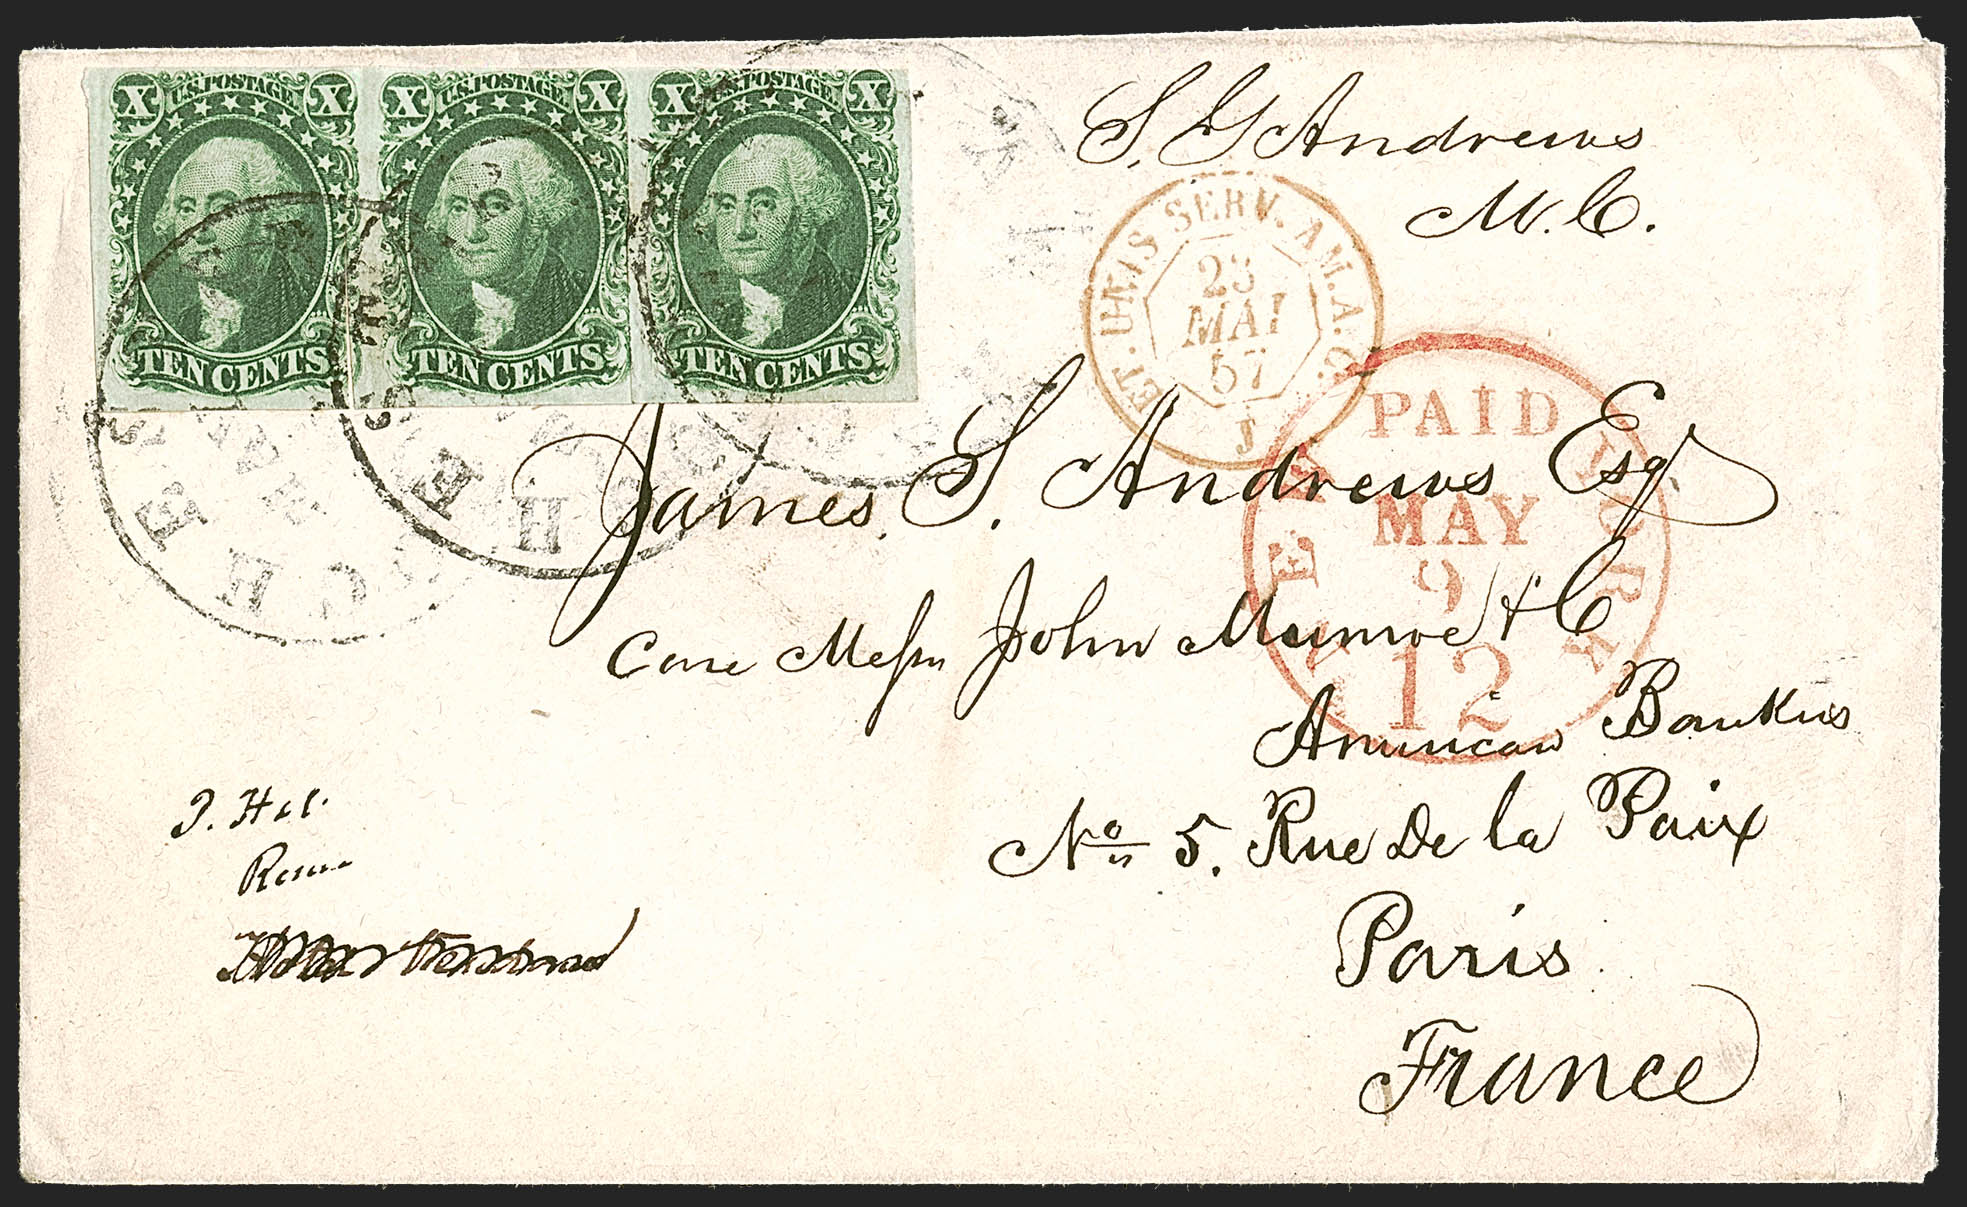 X U.S. POSTAGE. X X U.S. POSTAGE. X X U.S. POSTAGE. X
TEN CENTS TEN CENTS TEN CENTS
S. G Andrews
M. C.
ET. UNIS SERV. AM. A. C.
23
MAI
57
J
NEW YORK
PAID
MAY
9
12
ROCHESTER
James. S. Andrews Esq.
Care Messrs John Munroe & C
American Bankers
No 5. Rue De la Paix
Paris.
France